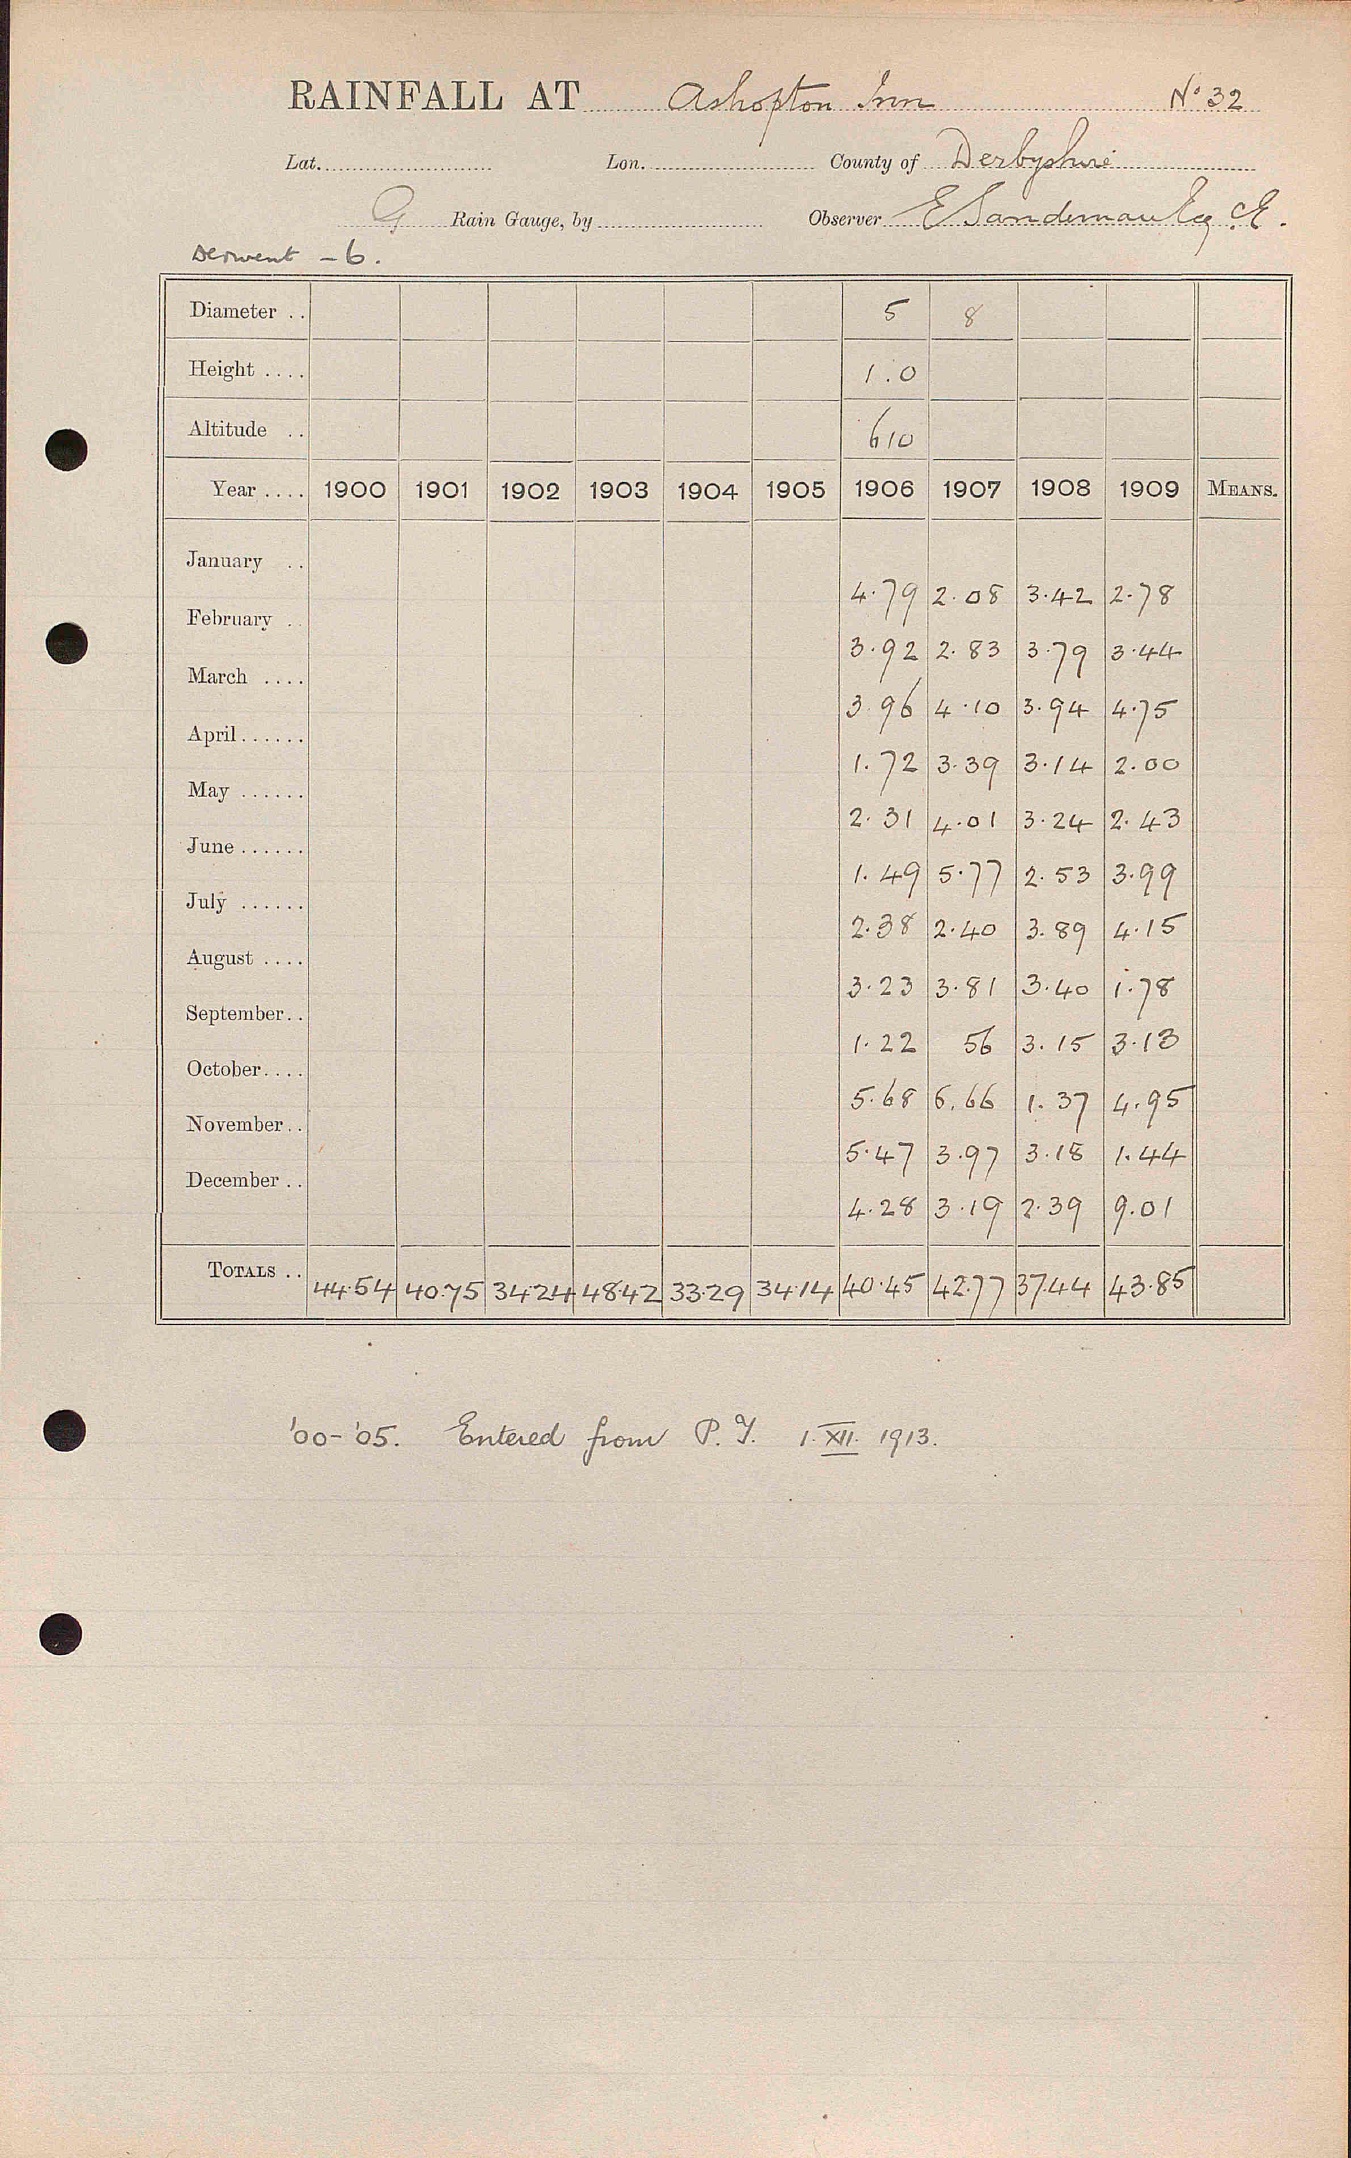 RAINFALL AT Ashopton Inn No 32
Lat. Lon. County of Derbyshire
G Rain Gauge, by Observer E Sandeman Esq C.E.
Derwent - 6.
Diameter .. 5 8
Height .... 1.0
Altitude .. 610
Year .... 1900 1901 1902 1903 1904 1905 1906 1907 1908 1909 MEANS.
January .. 4.79 2.08 3.42 2.78
February .. 3.92 2.83 3.79 3.44
March .... 3.96 4.10 3.94 4.75
April ...... 1.72 3.39 3.14 2.00
May ...... 2.31 4.01 3.24 2.43
June ...... 1.49 5.77 2.53 3.99
July ...... 2.38 2.40 3.89 4.15
August .... 3.23 3.81 3.40 1.78
September .. 1.22 56 3.15 3.13
October .... 5.68 6.66 1.37 4.95
November .. 5.47 3.97 3.18 1.44
December .. 4.28 3.19 2.39 9.01
TOTALS .. 44.54 40.75 34.24 48.42 33.29 34.14 40.45 42.77 37.44 43.85
'00-'05. Entered from P.Y. 1.XII.1913.